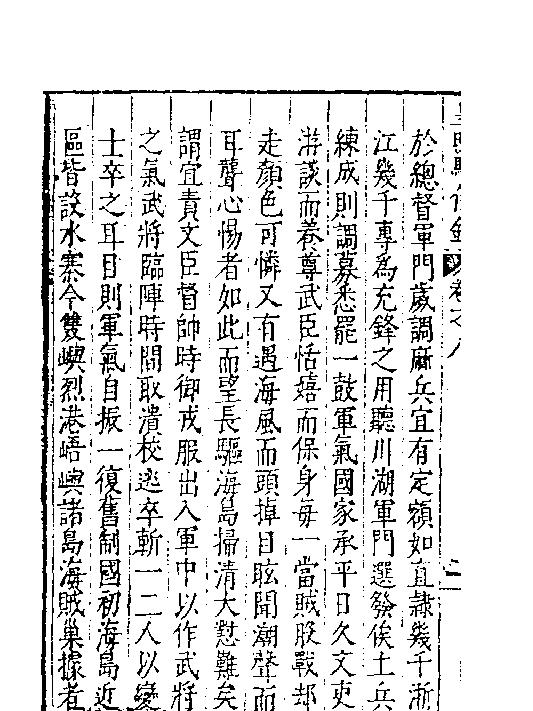 卷之八
於總督軍門歲調麻兵宜有定額如直隷幾千浙
江幾千專為充鋒之用聽川湖軍門選發俟土兵
練成則調募悉罷一鼓軍氣國家承平日久文吏
游談而養尊武臣恬嬉而保身每一當賊股戰却
走顏色可憐又有遇海風而頭掉目眩聞潮聲而
耳聾心惕者如此而望長驅海島掃清大憝難矣
謂宜責文臣督帥時御戎服出入軍中以作武將
之氣武將臨陣時間取潰校逃卒斬一二人以變
士卒之耳目則軍氣自振一復舊制國初海島近
區皆設水寨今雙嶼烈港峿嶼諸島海賊巢據者